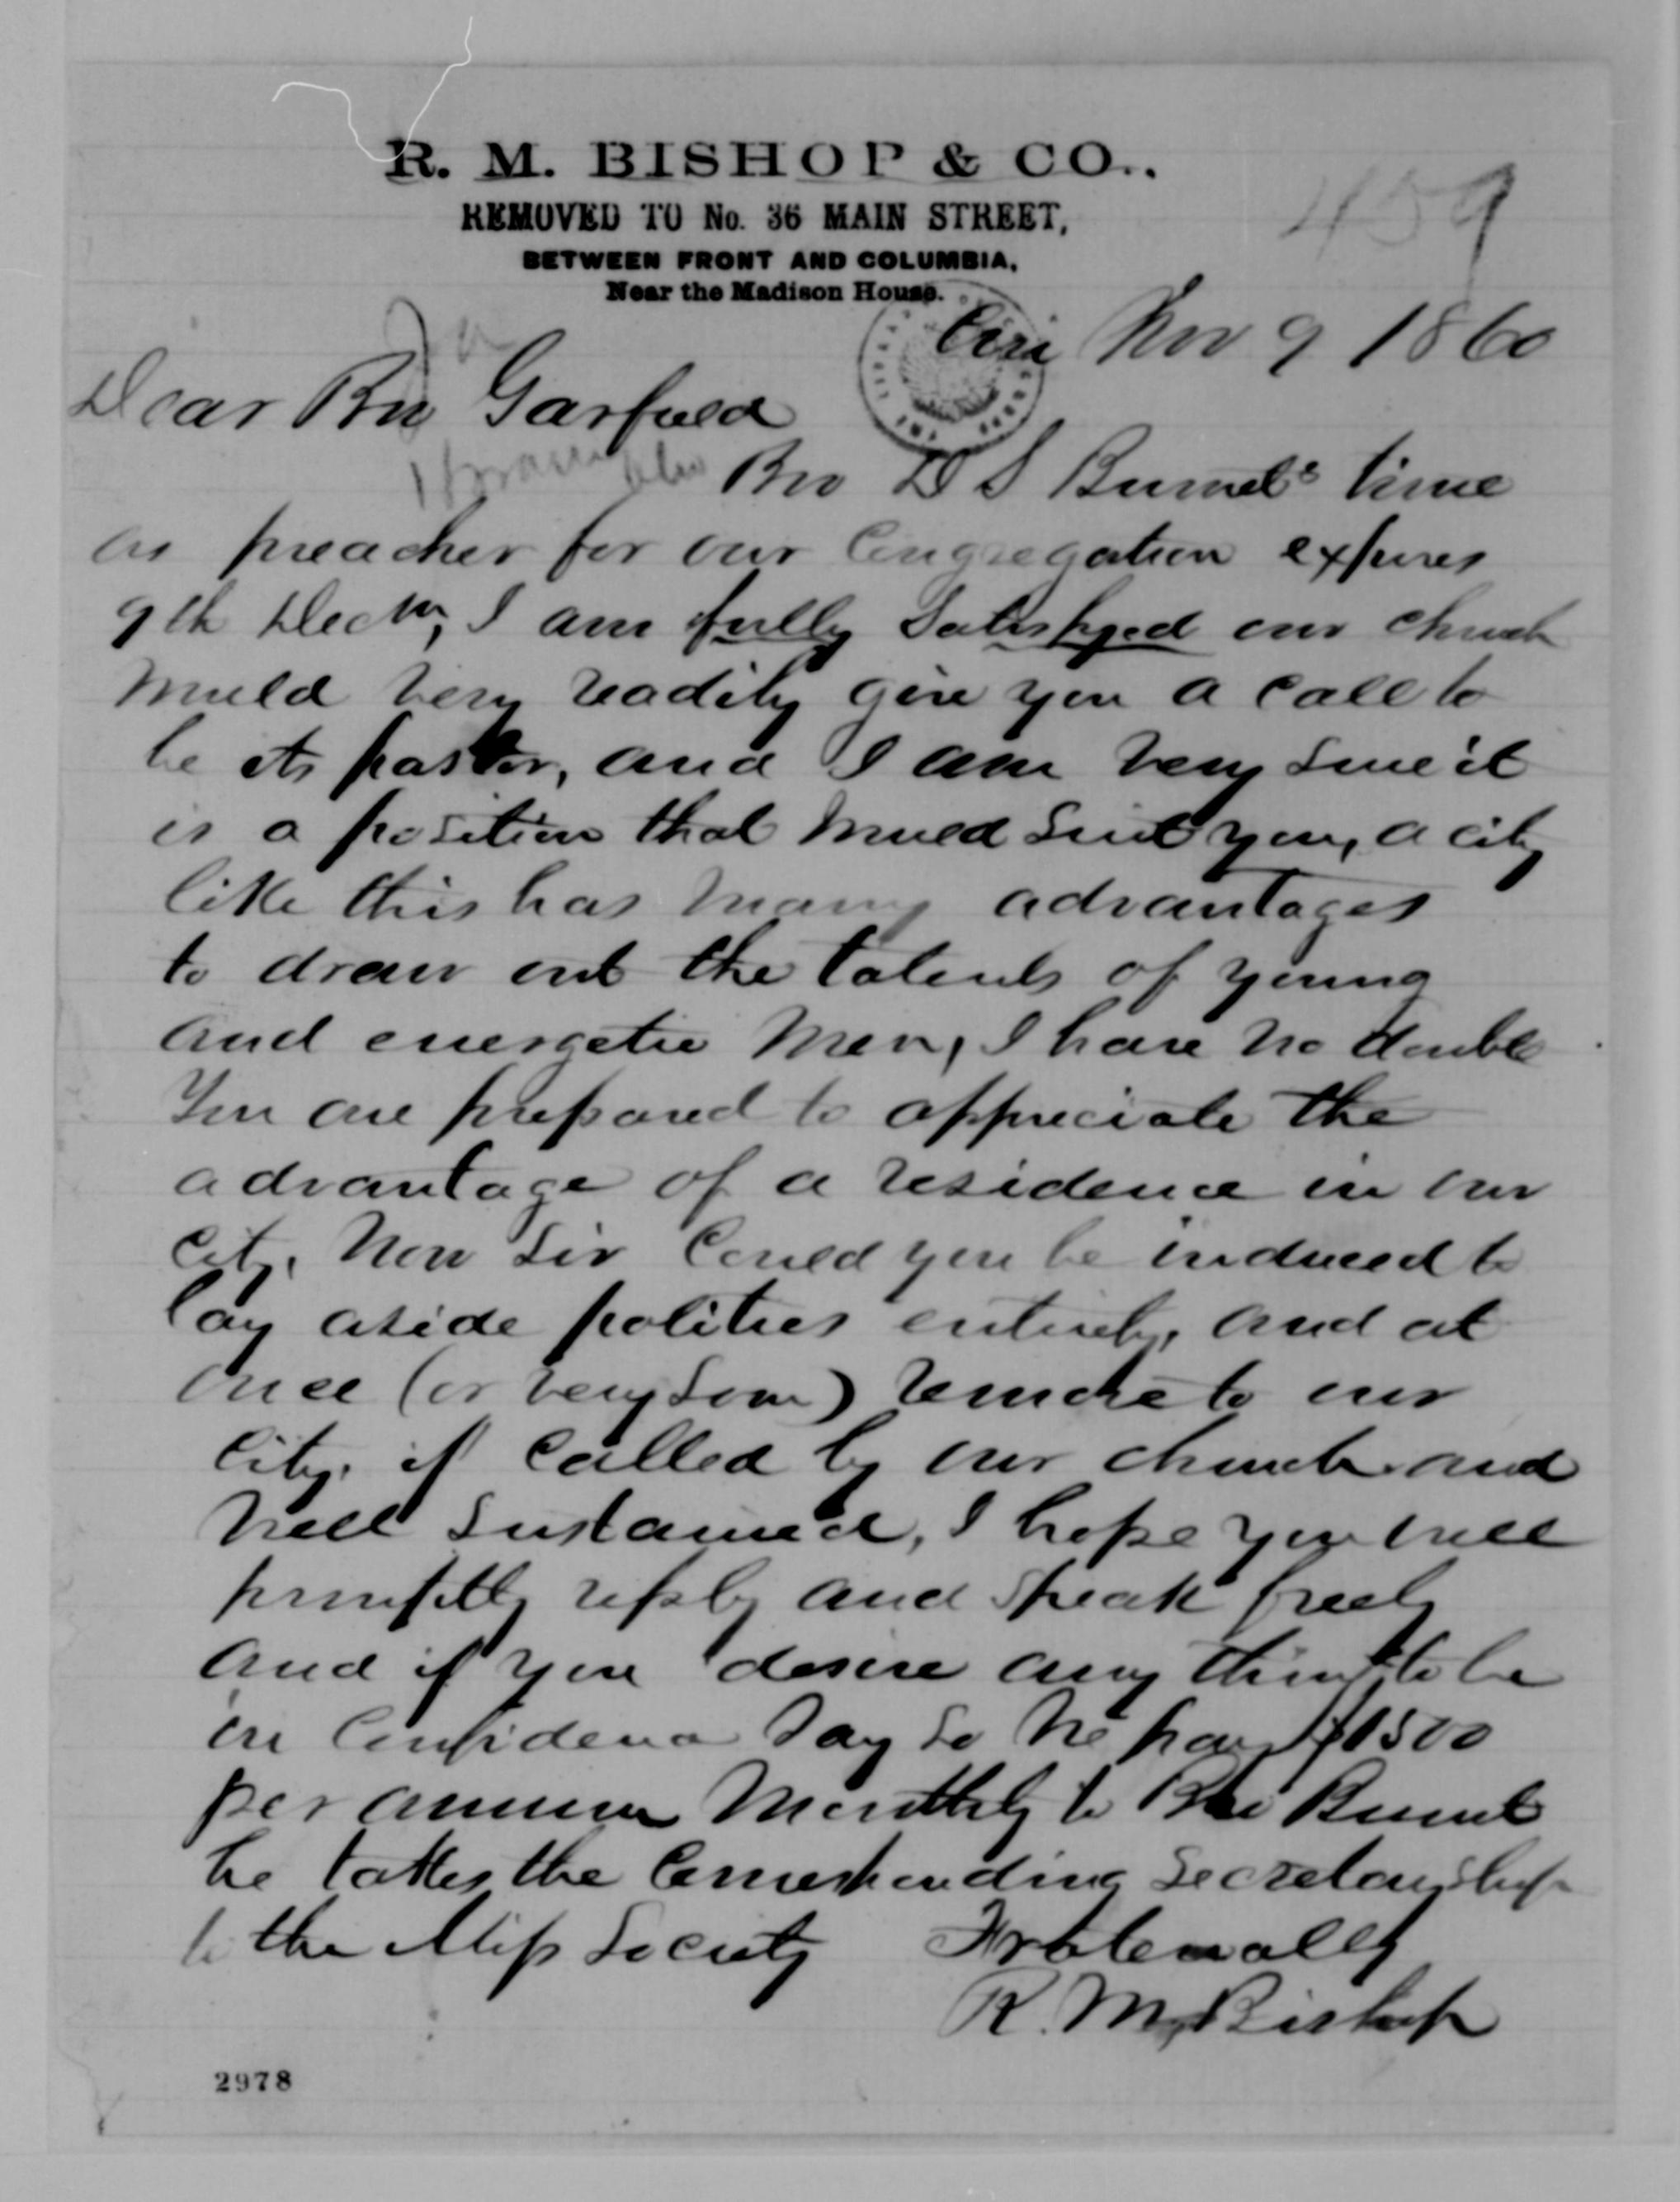 R. M. BISHOP & CO.,
REMOVED TO No. 36 MAIN STREET,
BETWEEN FRONT AND COLUMBIA,
Near the Madison House.
459
Cin Nov 9 1860
Dear Bro Garfield
Bro D S Burnets time
as preacher for our Congregation expires
9th Decm, I am fully Satisfyed our church
would very readily give you a call to
be its pastor, and I am very sure it
is a position that would suit you, a city
like this has many advantages
to draw out the talents of young
and energetic men, I have no doubt
You are prepared to appreciate the
advantage of a residence in our
City. Now Sir Could you be induced to
lay aside politics entirely, and at
once (or very soon) remove to our
City, if called by our church and
well sustained, I hope you will
promptly reply and speak freely
and if you desire any thing to be
in Confidence say so We pay $1500
per annum Monthly to Bro Burnet
he takes the Corresponding Secretaryship
to the Miss Society Fraternally
R. M. Bishop
2978